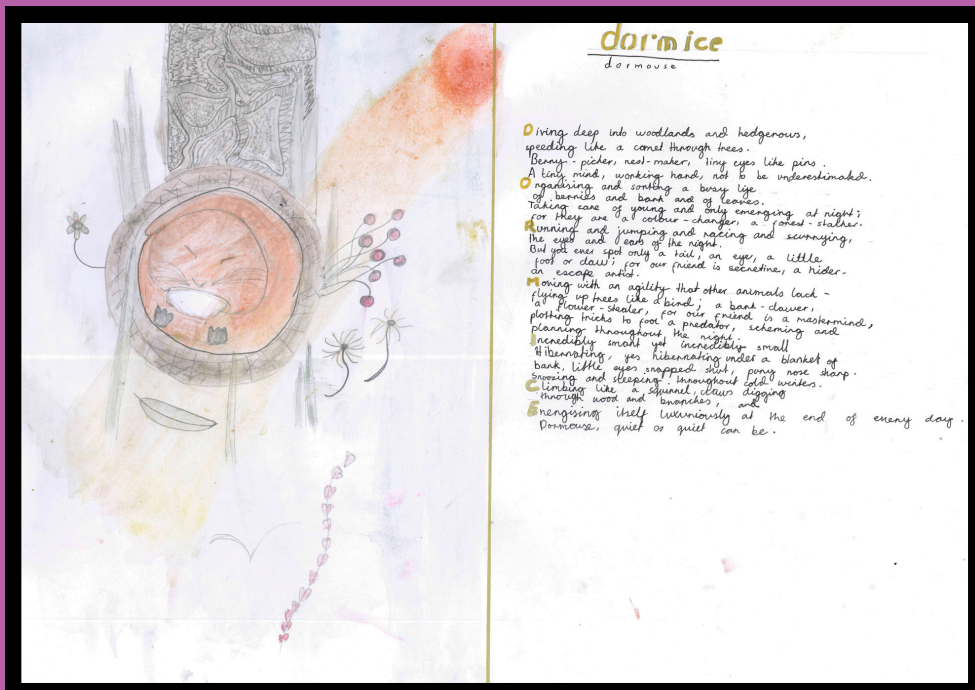 dormice
dormouse
Diving deep into woodlands and hedgerows,
speeding like a comet through trees.
Berry-picker, nest-maker, tiny eyes like pins.
A tiny mind, working hard, not to be underestimated.
Organising and sorting a busy life
of berries and bark and of leaves.
Taking care of young and only emerging at night;
for they are a colour-changer, a forest-stalker.
Running and jumping and racing and scurrying,
the eyes and ears of the night.
But you ever spot only a tail, an eye, a little
foot or claw; for our friend is secretive, a hider-
an escape artist.
Moving with an agility that other animals lack -
flying up trees like a bird; a bark-clawer,
a flower-stealer, for our friend is a mastermind,
plotting tricks to fool a predator, scheming and
planning throughout the night.
Incredibly smart yet incredibly small
Hibernating, yes hibernating under a blanket of
bark, little eyes snapped shut, puny nose sharp.
Snoozing and sleeping throughout cold winters.
Climbing like a squirrel, claws digging
through wood and branches, and
Energising itself luxuriously at the end of every day.
Dormouse, quiet as quiet can be.